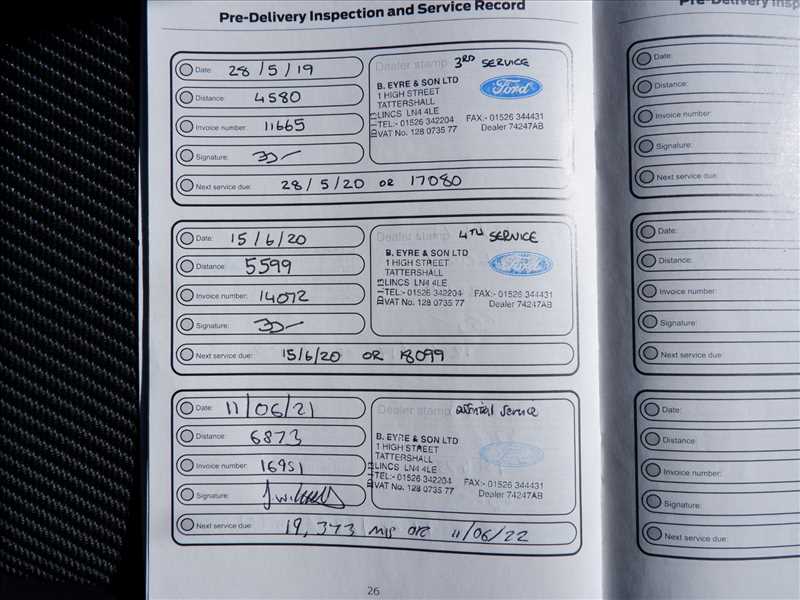 Pre-Delivery Inspection and Service Record
Date: 28/5/19
Distance: 4580
Invoice number: 11665
Signature:
Next service due: 28/5/20 OR 17080
Dealer stamp 3RD SERVICE
B. EYRE & SON LTD
1 HIGH STREET
TATTERSHALL
LINCS LN4 4LE
TEL:- 01526 342204 FAX:- 01526 344431
VAT No. 128 0735 77 Dealer 74247AB
Ford
Date: 15/6/20
Distance: 5599
Invoice number: 14072
Signature:
Next service due: 15/6/20 OR 18099
Dealer stamp 4TH SERVICE
B. EYRE & SON LTD
1 HIGH STREET
TATTERSHALL
LINCS LN4 4LE
TEL:- 01526 342204 FAX:- 01526 344431
VAT No. 128 0735 77 Dealer 74247AB
Ford
Date: 11/06/21
Distance: 6873
Invoice number: 16951
Signature:
Next service due: 19,373 MLS OR 11/06/22
Dealer stamp service
B. EYRE & SON LTD
1 HIGH STREET
TATTERSHALL
LINCS LN4 4LE
TEL:- 01526 342204 FAX:- 01526 344431
VAT No. 128 0735 77 Dealer 74247AB
Ford
26
Pre-Delivery
Date:
Distance:
Invoice number:
Signature:
Next service due:
Date:
Distance:
Invoice number:
Signature:
Next service due:
Date:
Distance:
Invoice number:
Signature:
Next service due: